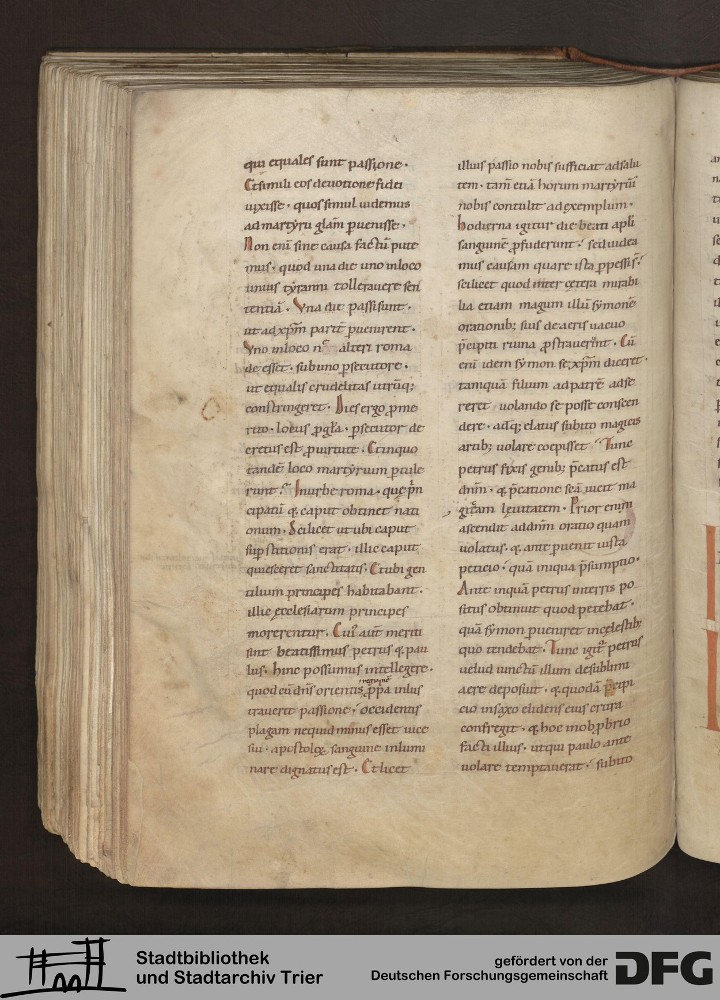 qui equales sunt passione.
Et simili eos deuotione fidei
uixisse. quos simul uidemus
ad martyrii glam puenisse.
Non eni sine causa factu pute
mus. quod una die uno in loco
unius tyranni tollerauere sen
tentia. Vna die passi sunt.
ut ad xpm parit puenirent.
Vno in loco ne alteri roma
de esset. sub uno psecutore.
ut equalis crudelitas utruq;
constringeret. Dies ergo p me
rito. locus p gla. psecutor de
cretus est p uirtute. Et in quo
tande loco martyrium ptule
runt? In urbe roma. que prin
cipatu & caput obtinet nati
onum. Scilicet ut ubi caput
supstitionis erat. illic caput
quiesceret sanctitatis. Et ubi gen
tilium principes habitabant.
illic ecclesiarum principes
morerentur. Cui aut meriti
sint beatissimus petrus & pau
lus. hinc possumus intellegere.
quod cu dns orientis ppa inlus
trauerit passione. occidentis
plagam nequid minus esset uice
sui. apostolor sanguine inlumi
nare dignatus est. Et licet
illius passio nobis sufficiat ad salu
tem. tam etia horum martyrii
nobis contulit ad exemplum.
hodierna igitur die beati apli
sanguine pfuderunt. sed uidea
mus causam quare ista ppessi s.
scilicet quod inter cetera mirabi
lia etiam magum illu symone
orationib; suis de aeris uacuo
pcipiti ruina pstrauerint. Cu
eni idem symon se xpm diceret.
tamqua filium ad patre adse
reret uolando se posse conscen
dere. adq; elatus subito magicis
artib; uolare coepisset. Tunc
petrus fixis genib; pcatus est
dnm. & pcatione sca uicit ma
gicam leuitatem. Prior enim
ascendit ad dnm oratio quam
uolatus. & ante puenit iusta
peticio. qua iniqua psumptio.
Ante inqua petrus in terris po
situs obtinuit quod petebat.
qua symon pueniret in celestib;
quo tendebat. Tunc igit petrus
uelud uinctu illum de sublimi
aere deposuit. & quoda pcipi
cio in saxo elidens eius crura
confregit. & hoc in obpbrio
facti illius. ut qui paulo ante
uolare temptauerat. subito
Stadtbibliothek
und Stadtarchiv Trier
gefördert von der
Deutschen Forschungsgemeinschaft
DFG